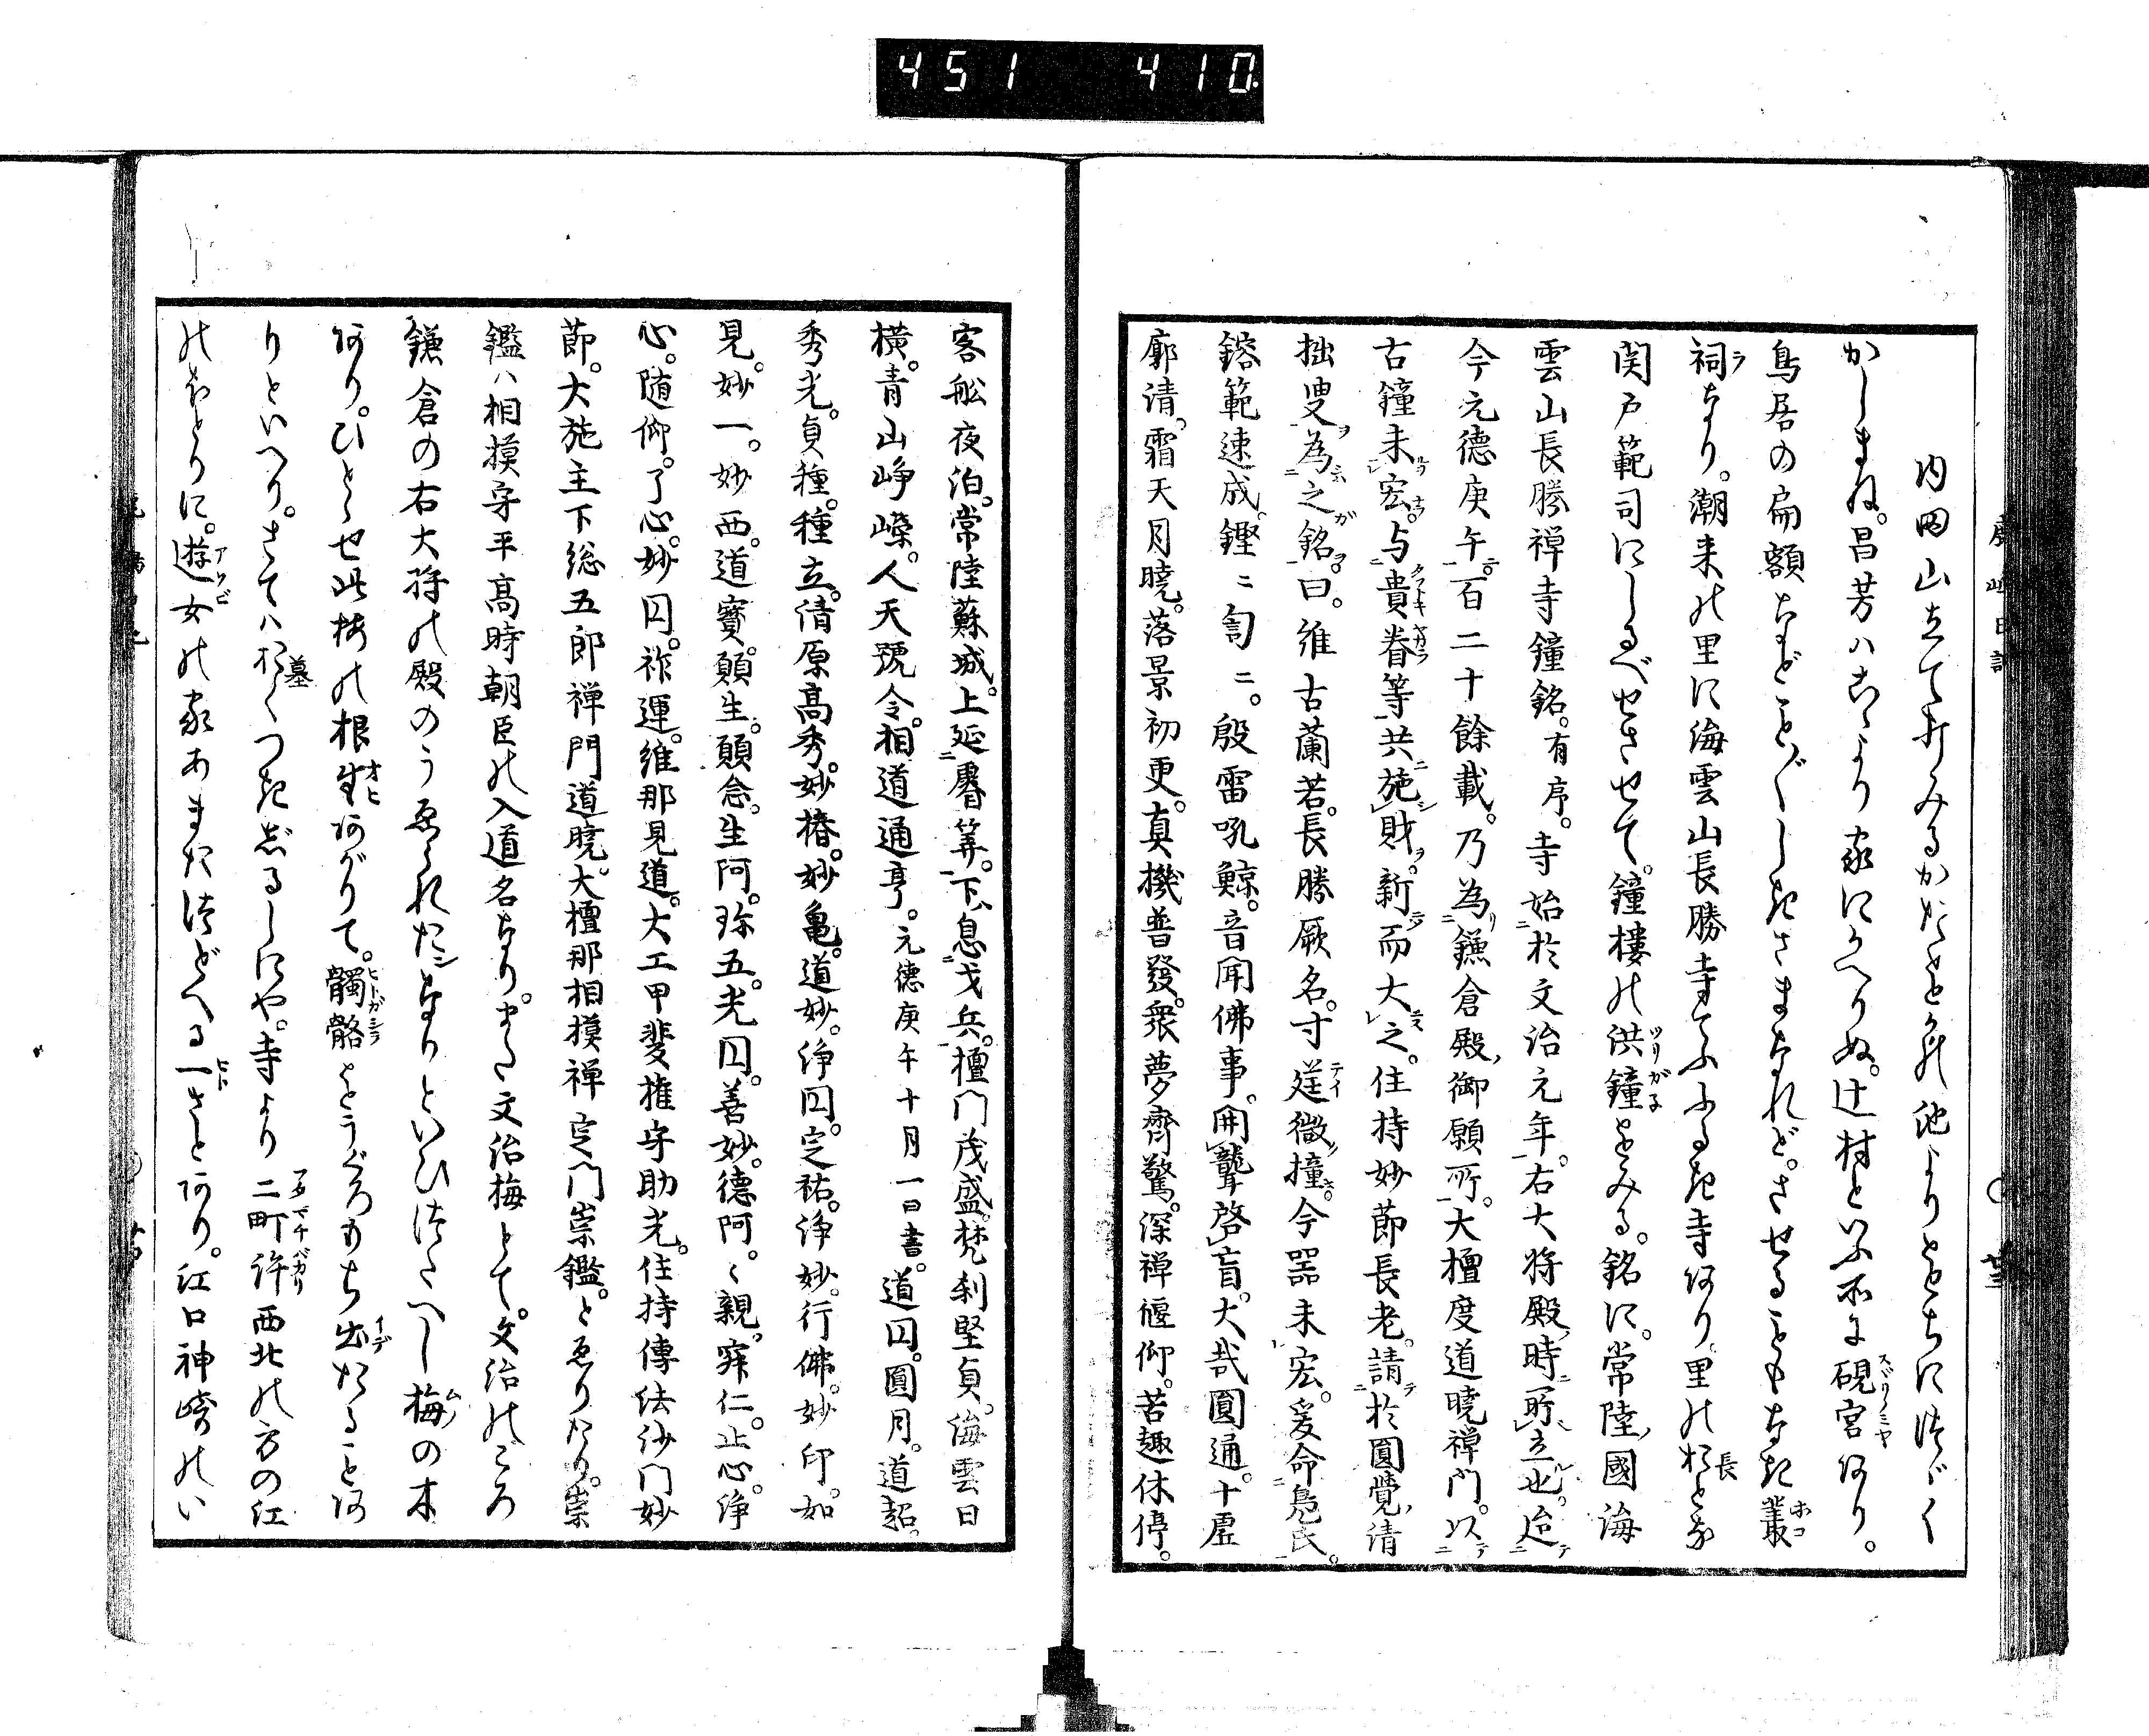 451 410
鹿嶋日記 廿三
内田山立て打みるかたをとかれ池よりをちにつゞく
かしまね。昌芳はこゝより家にかへりぬ。辻村といふ所に硯宮あり。
鳥居の扁額などこと〴〵しきさまなれど。させることもなき叢
祠なり。潮来の里に海雲山長勝寺てふふるき寺あり。里の長とな
関戸範司にしるべせさせて。鐘樓の洪鐘をみる。銘に。常陸國海
雲山長勝禅寺鐘銘。有序。寺始於文治元年。右大将殿時所立也。迨
今元徳庚午。百二十餘載。乃為鎌倉殿御願所。大檀度道曉禅門。以
古鐘未宏。与貴眷等共施財。新而大之。住持妙節長老。請於圓覺清
拙叟為之銘。曰。維古蘭若。長勝厥名。寸莛微撞。今器未宏。爰命鳧氏。
鎔範速成。鏗ニ訇ニ。殷雷吼鯨。音聞佛事。開聾啓盲。大哉圓通。十虚
廓清。霜天月曉。落景初更。真機普發。衆夢齊驚。深禅偃仰。苦趣休停。
客舩夜泊。常陸蘇城。上延睿筭。下息戈兵。檀門茂盛。梵刹堅貞。海雲日
横。青山崢嶸。人天號令。相道通亨。元徳庚午十月一日書。道円。圓月。道韶。
秀光。貞種。種立。清原高秀。妙椿。妙亀。道妙。浄円。定祐。浄妙。行佛。妙印。如
見。妙一。妙西。道寶。願生。願念。生阿。弥五。光円。善妙。徳阿。〻親。寂仁。止心。浄
心。随仰。了心。妙円。祚運。維那見道。大工甲斐権守助光。住持傳法沙門妙
節。大施主下総五郎禅門道曉。大檀那相摸禅定門崇鑑。とゑりたり。崇
鑑ハ相摸守平高時朝臣の入道名なり。また文治梅とて。文治のころ
鎌倉の右大将の殿のうゑられたシなりといひつたへし梅の木
あり。ひとゝせ此梅の根生あがりて。髑髏をうぐろもち出たることあ
りといへり。さてハおくつきのしるしにや。寺より二町許西北の方の江
のほとりに。遊女の家あまたつどへる一さとあり。江口神崎のい